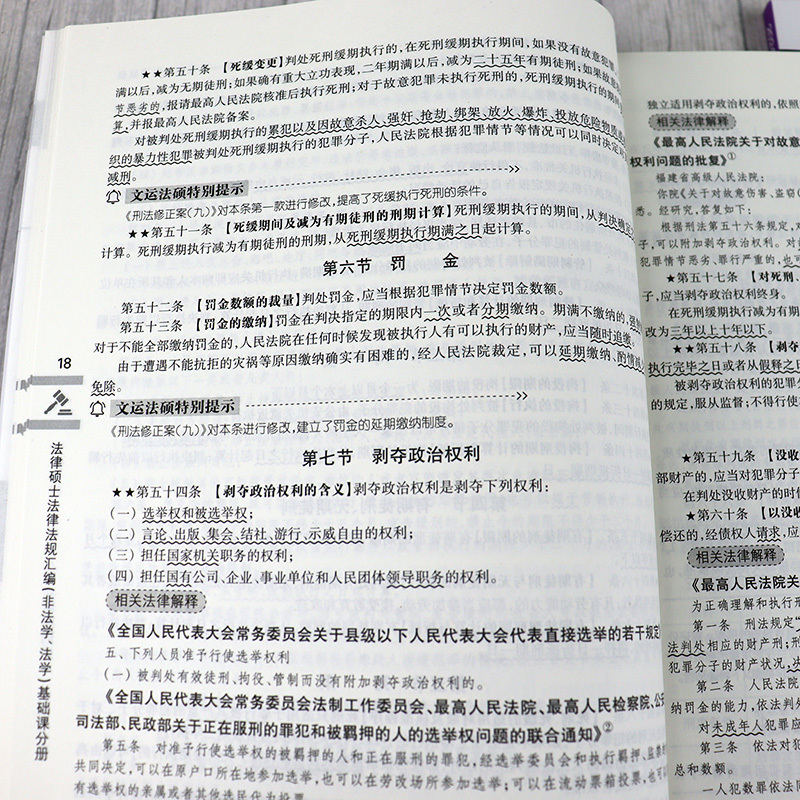 ★★第五十条 【死缓变更】判处死刑缓期执行的，在死刑缓期执行期间，如果没有故意犯
满以后，减为无期徒刑；如果确有重大立功表现，二年期满以后，减为二十五年有期徒刑；如果故
节恶劣的，报请最高人民法院核准后执行死刑；对于故意犯罪未执行死刑的，死刑缓期执行的期间
算，并报最高人民法院备案。
对被判处死刑缓期执行的累犯以及因故意杀人、强奸、抢劫、绑架、放火、爆炸、投放危险物质
织的暴力性犯罪被判处死刑缓期执行的犯罪分子，人民法院根据犯罪情节等情况可以同时决定
减刑。
文运法硕特别提示
《刑法修正案(九)》对本条第一款进行修改，提高了死缓执行死刑的条件。
★★第五十一条 【死缓期间及减为有期徒刑的刑期计算】死刑缓期执行的期间，从判决确定
计算。死刑缓期执行减为有期徒刑的刑期，从死刑缓期执行期满之日起计算。
第六节 罚 金
第五十二条 【罚金数额的裁量】判处罚金，应当根据犯罪情节决定罚金数额。
第五十三条 【罚金的缴纳】罚金在判决指定的期限内一次或者分期缴纳。期满不缴纳的，强
对于不能全部缴纳罚金的，人民法院在任何时候发现被执行人有可以执行的财产，应当随时追缴。
由于遭遇不能抗拒的灾祸等原因缴纳确实有困难的，经人民法院裁定，可以延期缴纳、酌情减
免除。
文运法硕特别提示
《刑法修正案(九)》对本条进行修改，建立了罚金的延期缴纳制度。
第七节 剥夺政治权利
★★第五十四条 【剥夺政治权利的含义】剥夺政治权利是剥夺下列权利：
(一) 选举权和被选举权；
(二) 言论、出版、集会、结社、游行、示威自由的权利；
(三) 担任国家机关职务的权利；
(四) 担任国有公司、企业、事业单位和人民团体领导职务的权利。
相关法律解释
《全国人民代表大会常务委员会关于县级以下人民代表大会代表直接选举的若干规定
五、下列人员准予行使选举权利
(一) 被判处有期徒刑、拘役、管制而没有附加剥夺政治权利的。
《全国人民代表大会常务委员会法制工作委员会、最高人民法院、最高人民检察院、公安
司法部、民政部关于正在服刑的罪犯和被羁押的人的选举权问题的联合通知》②
第五条 对准予行使选举权的被羁押的人和正在服刑的罪犯，经选举委员会和执行羁押、监禁的
共同决定，可以在原户口所在地参加选举，也可以在劳改场所参加选举；可以在流动票箱投票，也可
有选举权的亲属或者其他选民代为投票
18
法律硕士法律法规汇编(非法学、法学)基础课分册
独立适用剥夺政治权利的，依照
相关法律解释
《最高人民法院关于对故意
权利问题的批复》①
福建省高级人民法院：
你院《关于对故意伤害、盗窃
悉。经研究，答复如下：
根据刑法第五十六条规定，对
子，可以附加剥夺政治权利。对
犯罪情节恶劣、罪行严重的，也可
★第五十七条 【对死刑、
子，应当剥夺政治权利终身。
在死刑缓期执行减为有期
改为三年以上十年以下。
★★第五十八条 【剥夺
执行完毕之日或者从假释之日
被剥夺政治权利的犯罪分
的规定，服从监督；不得行使
★第五十九条 【没收
部财产的，应当对犯罪分子
在判处没收财产的时
★第六十条 【以没收
偿还的，经债权人请求，应
相关法律解释
《最高人民法院关
为正确理解和执行刑
第一条 刑法规定“
法判处相应的财产刑；刑
犯罪分子的财产状况，决
第二条 人民法院
纳罚金的能力，依法判处
对未成年人犯罪应
第三条 依法对犯
总和数额。
一人犯数罪依法同